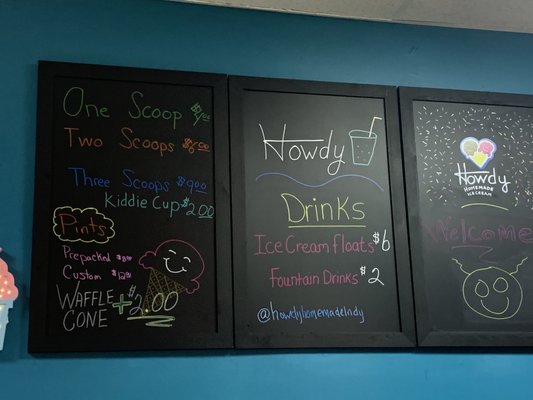 One Scoop
Two Scoops $6.00
Three Scoops $9.00
Kiddie Cup $2.00
Pints
Prepacked
Custom
WAFFLE CONE + $2.00
Howdy
Drinks
Ice Cream Floats $6
Fountain Drinks $2
@howdyhomemadeIndy
Howdy
HOMEMADE
ICE CREAM
Welcome